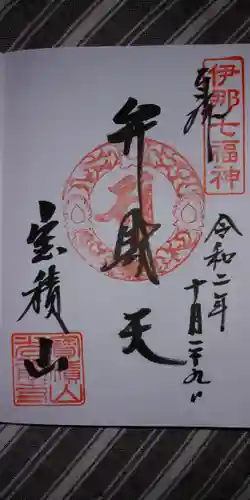 奉拝
伊那七福神
令和二年
十月二十九日
弁財天
宝積山